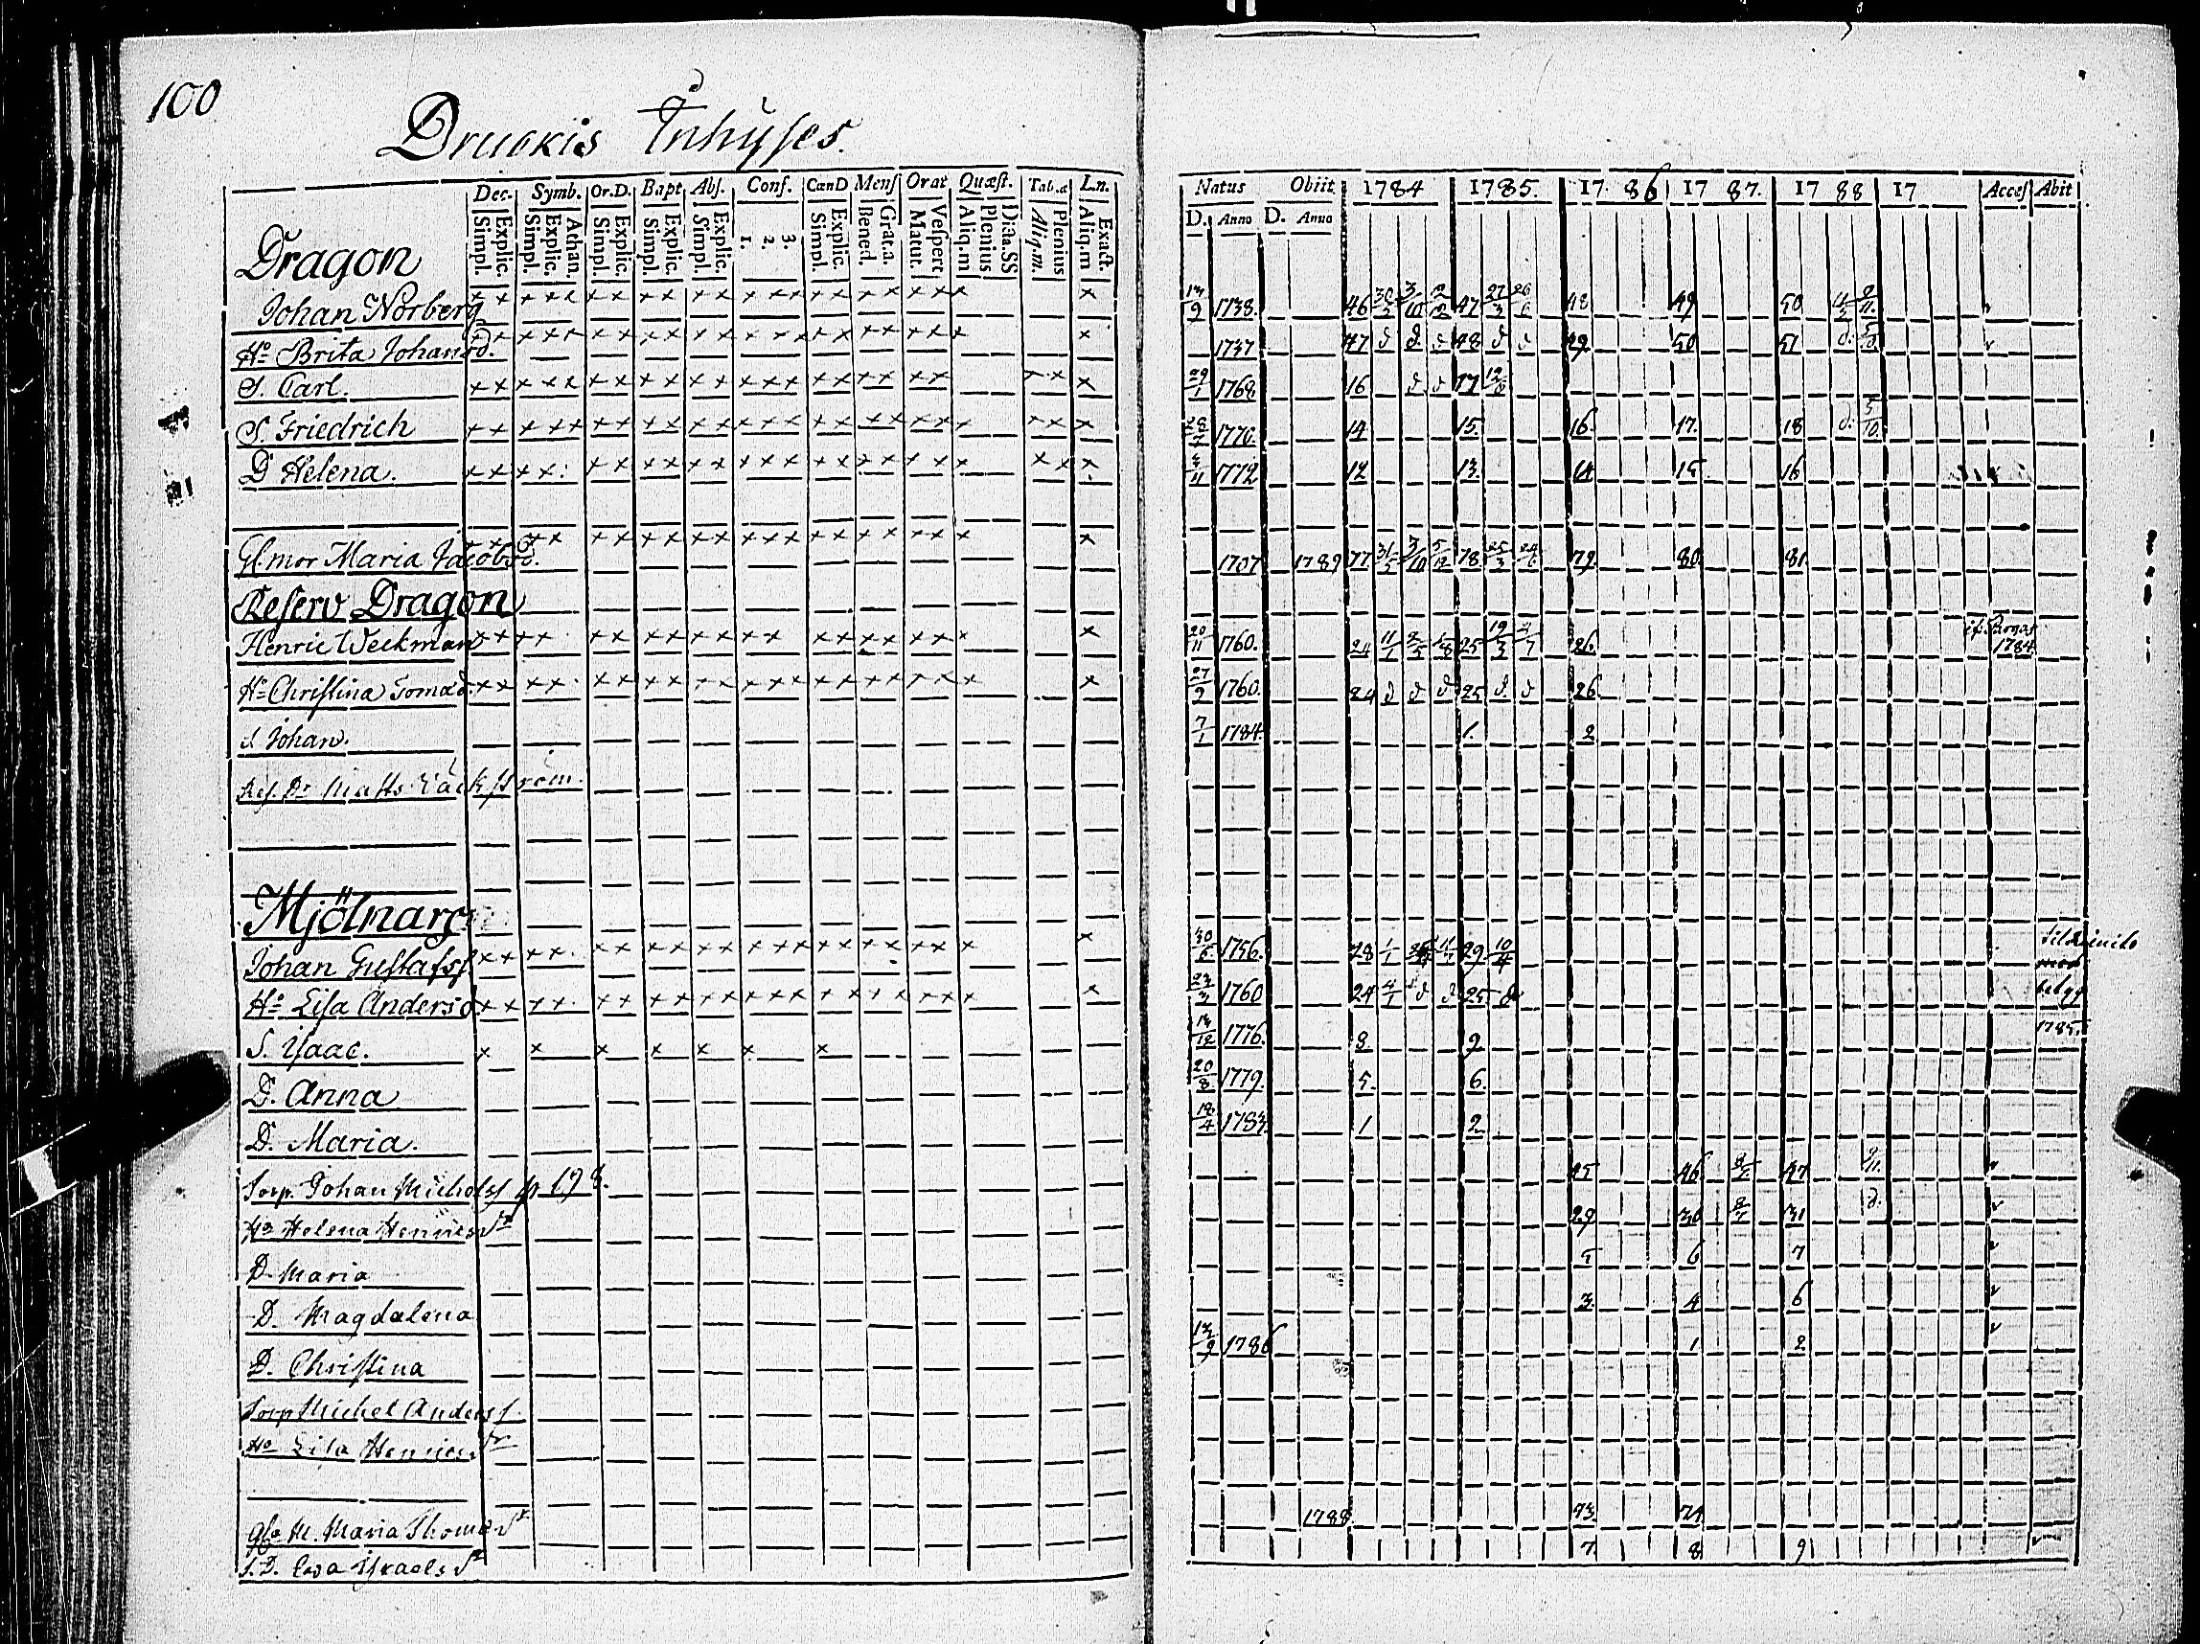 100
Druckis Inhyses.
Dec. Symb. Or.D. Bapt Abs. Conf. CœnD Mens Orat Quæst. Tab.æ L.n.
Simpl. Explic. Simpl. Explic. Athan. Simpl. Explic. Simpl. Explic. Simpl. Explic. 1. 2. 3. Simpl. Explic. Bened. Grat.a. Matut. Vespert Aliq.m Plenius Diaa.SS Aliq.m. Plenius Aliq.m Exact.
Natus Obiit 1784 1785. 17 86 17 87. 17 88 17 Acces Abit
D. Anno D. Anno
Dragon
Johan Norberg 13/9 1738. 46 47 48 49 50
Ho Brita Johansd. 1737 47 d d. d 48 d d 49 50 51 d.
S. Carl. 29/1 1768 16 d. d 17
S. Friedrich 1770. 14 15. 16. 17. 18 d. 5/10.
D Helena. 1772 12 13. 14 15. 16
Gl. mor Maria Jacobsd. 1707 1789 77 31/5 3/10 5/12 78 25/3 79 80. 81.
Reserv Dragon
Henric Weckman 20/11 1760. 24 25 26. 1784
Ho Christina Tomad. 27/9 1760. 24 d d d 25 d. d 26
S Johan. 7/1 1784. 1. 2
Res. Dr Matts Bäckström.
Mjölnare
Johan Gustafss 1756. 28 1/1 29 10/4
Ho Lisa Andersd 1760 24 4/1 d d 25 d 1785.
S. Isaac. 1776. 8. 9
D. Anna 20/8 1779. 5. 6.
D. Maria. 1783. 1 2
Torp. Johan Michelss p 178. 45 46 47
Ho Helena Henricsdr 29 30 31 d.
D. Maria 5 6 7
D. Magdalena 3. 4 6
D. Christina 13/9 1786 1 2
Torp Michel Anderss.
Ho Lisa Henricsdr
gla M. Maria Thomasdr 1788 73. 74
S.D. Ewa Israelsdr 7. 8 9